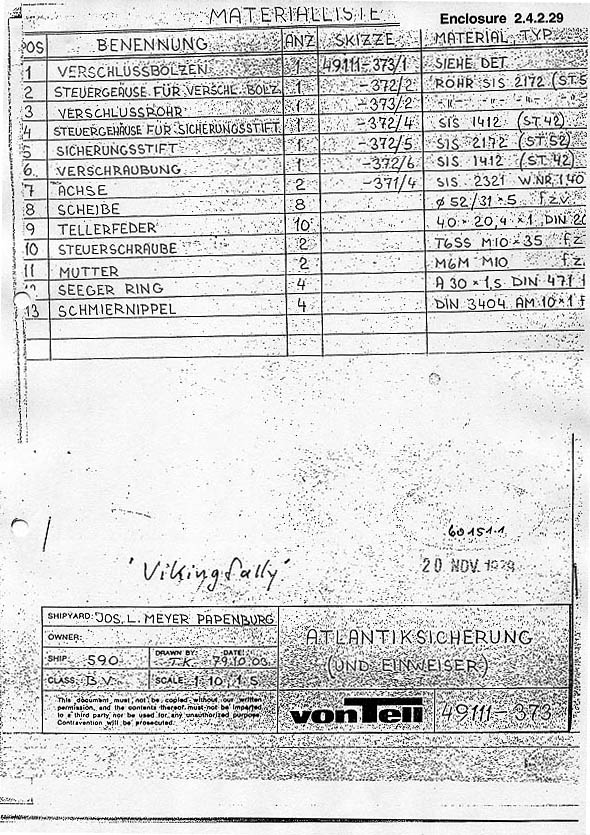 MATERIALLISTE
Enclosure 2.4.2.29
POS BENENNUNG ANZ SKIZZE MATERIAL, TYP
1 VERSCHLUSSBOLZEN 1 49111-373/1 SIEHE DET.
2 STEUERGEÄUSE FÜR VERSCHL. BOLZ 1 -372/2 ROHR SIS 2172 (ST.5
3 VERSCHLUSSROHR 1 -373/2 -"- -"- -"-
4 STEUERGEHÄUSE FÜR SICHERUNGSSTIFT 1 -372/4 SIS 1412 (ST.42)
5 SICHERUNGSSTIFT 1 -372/5 SIS 2172 (ST.52)
6. VERSCHRAUBUNG 1 -372/6 SIS 1412 (ST.42)
7 ACHSE 2 -371/4 SIS 2321 W.NR.1,40
8 SCHEIBE 8 ø 52/31 × 5 f.z.v.
9 TELLERFEDER 10 40 × 20,4 × 1, DIN 20
10 STEUERSCHRAUBE 2 T6SS M10 × 35 f.z.
11 MUTTER 2 M6M M10 f.z.
12 SEEGER RING 4 A 30 × 1,5 DIN 471
13 SCHMIERNIPPEL 4 DIN 3404 AM 10 × 1 f
60151.1
'Viking Sally'
20 NOV. 1979
SHIPYARD: JOS. L. MEYER PAPENBURG
OWNER:
SHIP: 590 DRAWN BY: T.K. DATE: 79.10.03
CLASS: B.V. SCALE: 1:10, 1:5
This document must not be copied without our written
permission, and the contents thereof must not be imparted
to a third party nor be used for any unauthorized purpose.
Contravention will be prosecuted.
ATLANTIKSICHERUNG
(UND EINWEISER)
von Tell 49111-373